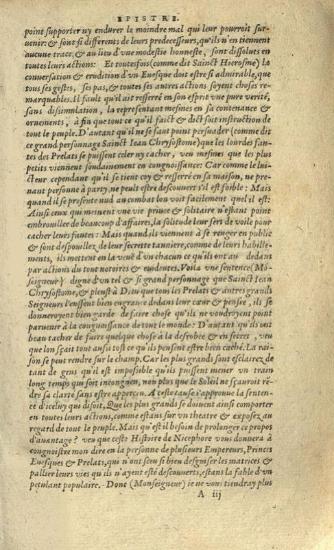 EPISTRE.
point supporter ny endurer le moindre mal qui leur pourroit sur-
uenir: & sont si differents de leurs predecesseurs, qu'ils n'en tiennent
aucune trace, & au lieu d'vne modestie honneste, sont dissolues en
toutes leurs actions: Et toutesfois (comme dit Sainct Hierosme) la
conuersation & erudition d'vn Euesque doit estre si admirable, que
tous ses gestes, ses pas, & toutes ses autres actions soyent choses re-
marquables. Il fault qu'il ait resserré en son esprit vne pure verité,
sans dissimulation, la representant mesmes en sa contenance &
ornements, à fin que tout ce qu'il faict & dict soit instruction de
tout le peuple. D'autant qu'il ne se faut point persuader (comme dit
ce grand personnage Sainct Iean Chrysostome) que les lourdes fau-
tes des Prelats se puissent celer ny cacher, veu mesmes que les plus
petites viennent soudainement en congnoissance: Car comme le luic-
teur cependant qu'il se tient coy & resserré en sa maison, ne pre-
nant personne à party, ne peult estre descouuert s'il est foible: Mais
quand il se presente nud au combat lon voit facilement quel il est:
Ainsi ceux qui meinent vne vie priuee & solitaire n'estant point
embrouillez de beaucoup d'affaires, la solitude leur sert de voile pour
cacher leurs fautes: Mais quand ils viennent à se renger en public
& sont despouillez de leur secrette tanniere, comme de leurs habille-
ments, ils mettent en la veuë d'vn chacun ce qu'ils ont au dedans
par actions du tout notoires & euidentes. Voila vne sentence (Mõ-
seigneur) digne d'vn tel & si grand personnage que Sainct Iean
Chrysostome, & pleust à Dieu que tous les Prelats & autres grands
Seigneurs l'eussent bien engrauee dedans leur cœur & pensee, ils se
donneroyent bien garde de faire chose qu'ils ne voudroyent point
paruenir à la congnoissance de tout le monde: D'autant qu'ils ont
beau tacher de faire quelque chose à la desrobee & en secret, veu
que lon sçait tout aussi tost ce qu'ils pensent estre bien caché. La rai-
son se peut rendre sur le champ. Car les plus grands sont esclairez de
tant de gens qu'il est impossible qu'ils puissent mener vn train
long temps qui soit incongneu, non plus que le Soleil ne sçauroit rẽ-
dre sa clarté sans estre apperceu. A ceste cause i'approuue la sentence
d'iceluy qui disoit, Que les plus grands se doiuent ainsi comporter
en toutes leurs actions, comme estans sur vn theatre & exposez au
regard de tout le peuple. Mais qu'est il besoin de prolonger ce propos
d'auantage? veu que ceste Histoire de Nicephore vous donnera à
congnoistre mon dire en la personne de plusieurs Empereurs, Princes
Euesques & Prelats, qui n'ont sceu si bien desguiser les matieres &
pallier leurs vies qu'ils n'ayent esté descouuerts, estans la fable d'vn
petulant populaire. Donc (Monseigneur) ie ne vous tiendray plus
A iij